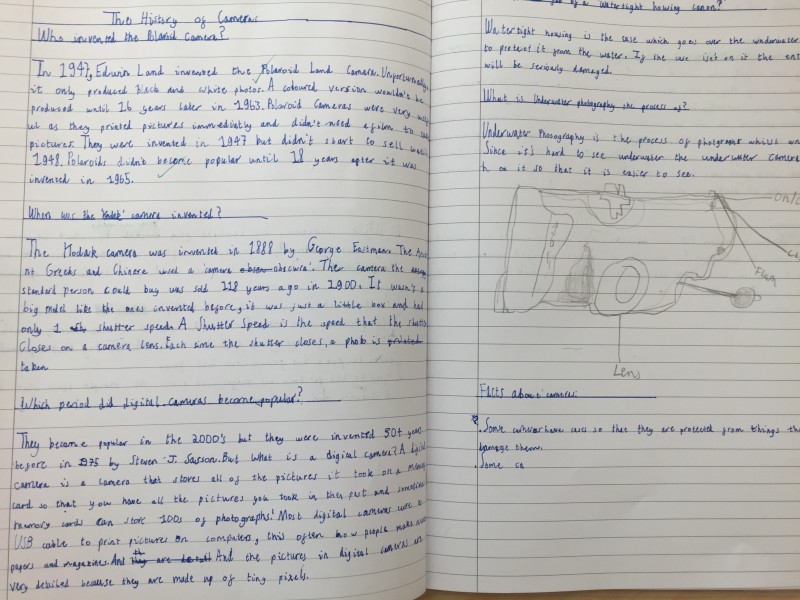 The History of Cameras
Who invented the Polaroid Camera?
In 1947, Edwin Land invented the Polaroid Land Camera. Unfortunately
it only produced Black and white photos. A coloured version wouldn't be
produced until 16 years later in 1963. Polaroid Cameras were very
ul as they printed pictures immediately and didn't need a film to
pictures. They were invented in 1947 but didn't start to sell until
1948. Polaroids didn't become popular until 18 years after it was
invented in 1965.
When was the 'Kodak' camera invented?
The Kodack camera was invented in 1888 by George Eastmann. The
nt Greeks and Chinese used a camera obscura'. The camera the
standard person could buy was sold 118 years ago in 1900. It wasn't a
big model like the ones invented before, it was just a little box and had
only 1 shutter speed. A Shutter Speed is the speed that the shutter
closes on a camera lens. Each time the shutter closes, a photo is printed
taken
Which period did digital cameras become popular?
They became popular in the 2000's but they were invented 30+ years
before in 1975 by Steven J. Sasson. But what is a digital camera? A digital
camera is a camera that stores all of the pictures it took on a memory
card so that you have all the pictures you took in the past and sometimes
memory cards can store 100s of photographs! Most digital cameras use a
USB cable to print pictures on computers, this often how people make
papers and magazines. And they are detail And the pictures in digital cameras are
very detailed because they are made up of tiny pixels.
of a watertight housing canon?
Watertight housing is the case which goes over the underwater
to protect it from the water. If the case isn't on it the
will be seriously damaged.
What is Underwater photography the process of?
Underwater Photography is the process of photographs whilst
Since it's hard to see underwater the underwater camera
h on it so that it is easier to see.
on/o
Flash
Lens
Facts about cameras
. Some cameras have cases so that they are protected from things
damage them.
. Some ca